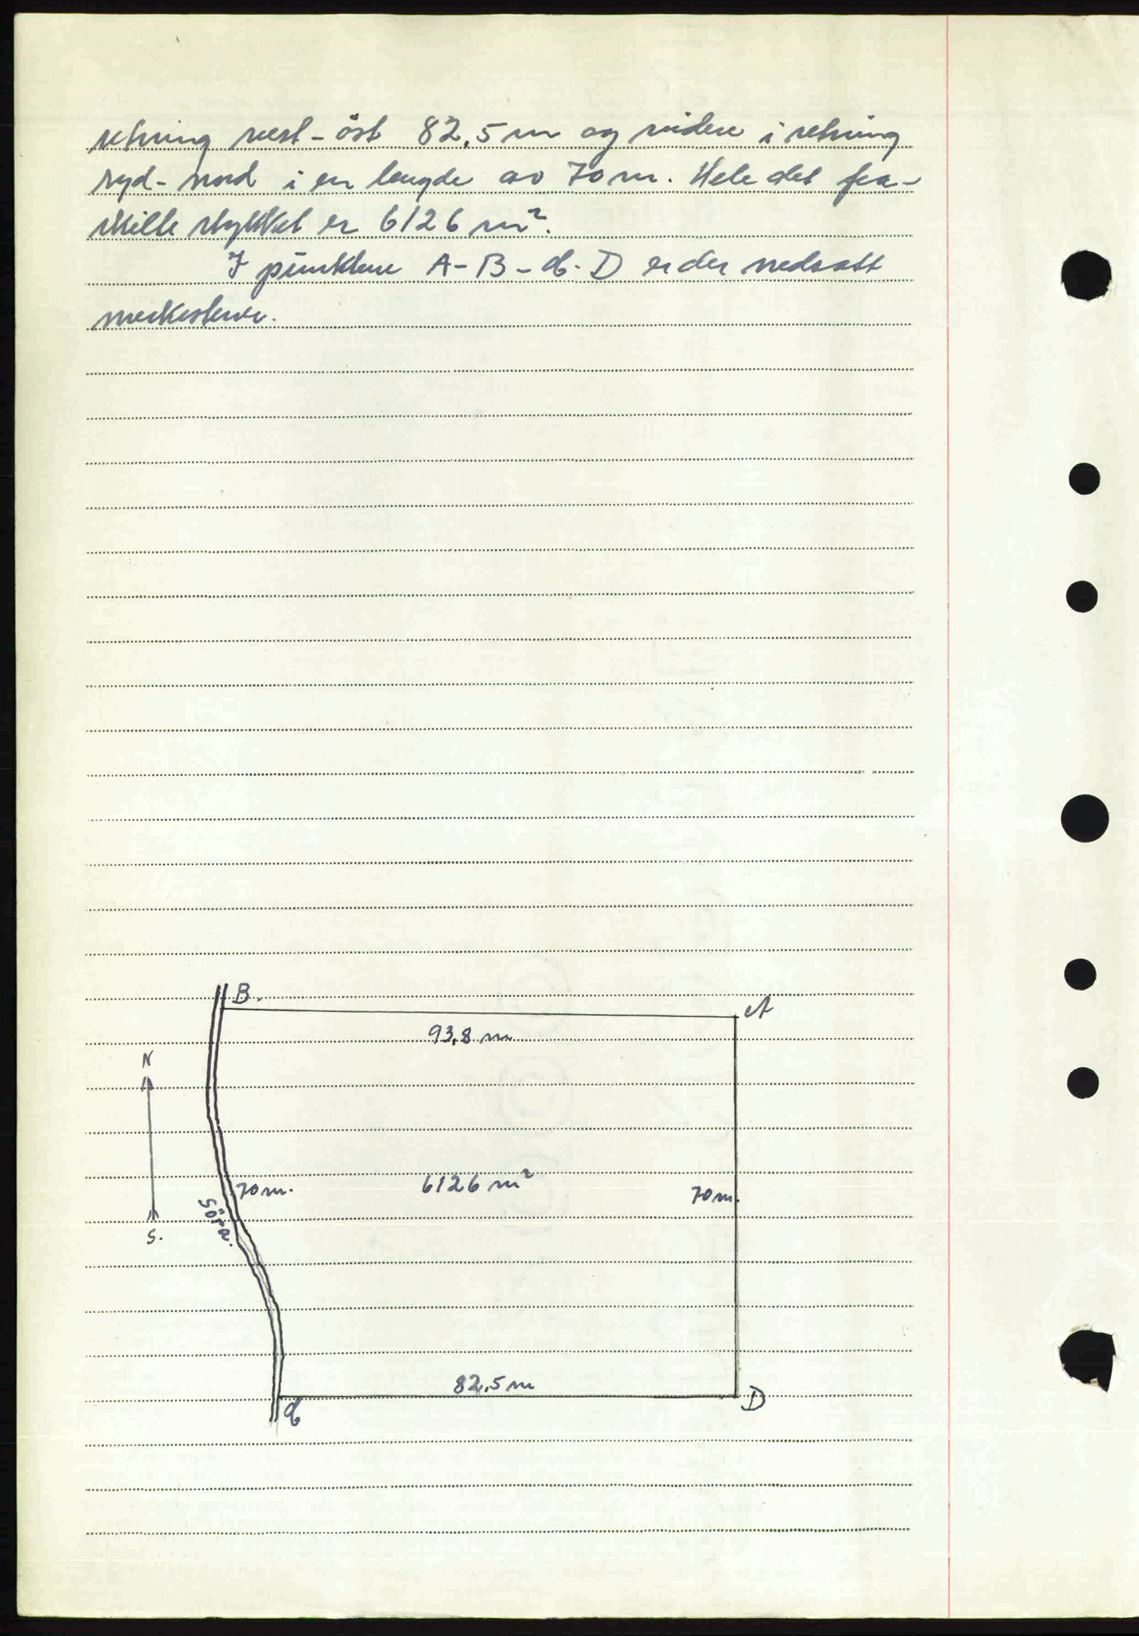 retning vest-öst 82,5 m og videre i retning
syd-nord i en lengde av 70 m. Hele det fra-
skille stykket er 6126 m².
I punktene A-B-C-D er der nedsatt
merkestener.
B.
A
93,8 m
N
70 m.
6126 m²
70 m.
S.
82,5 m
C
D